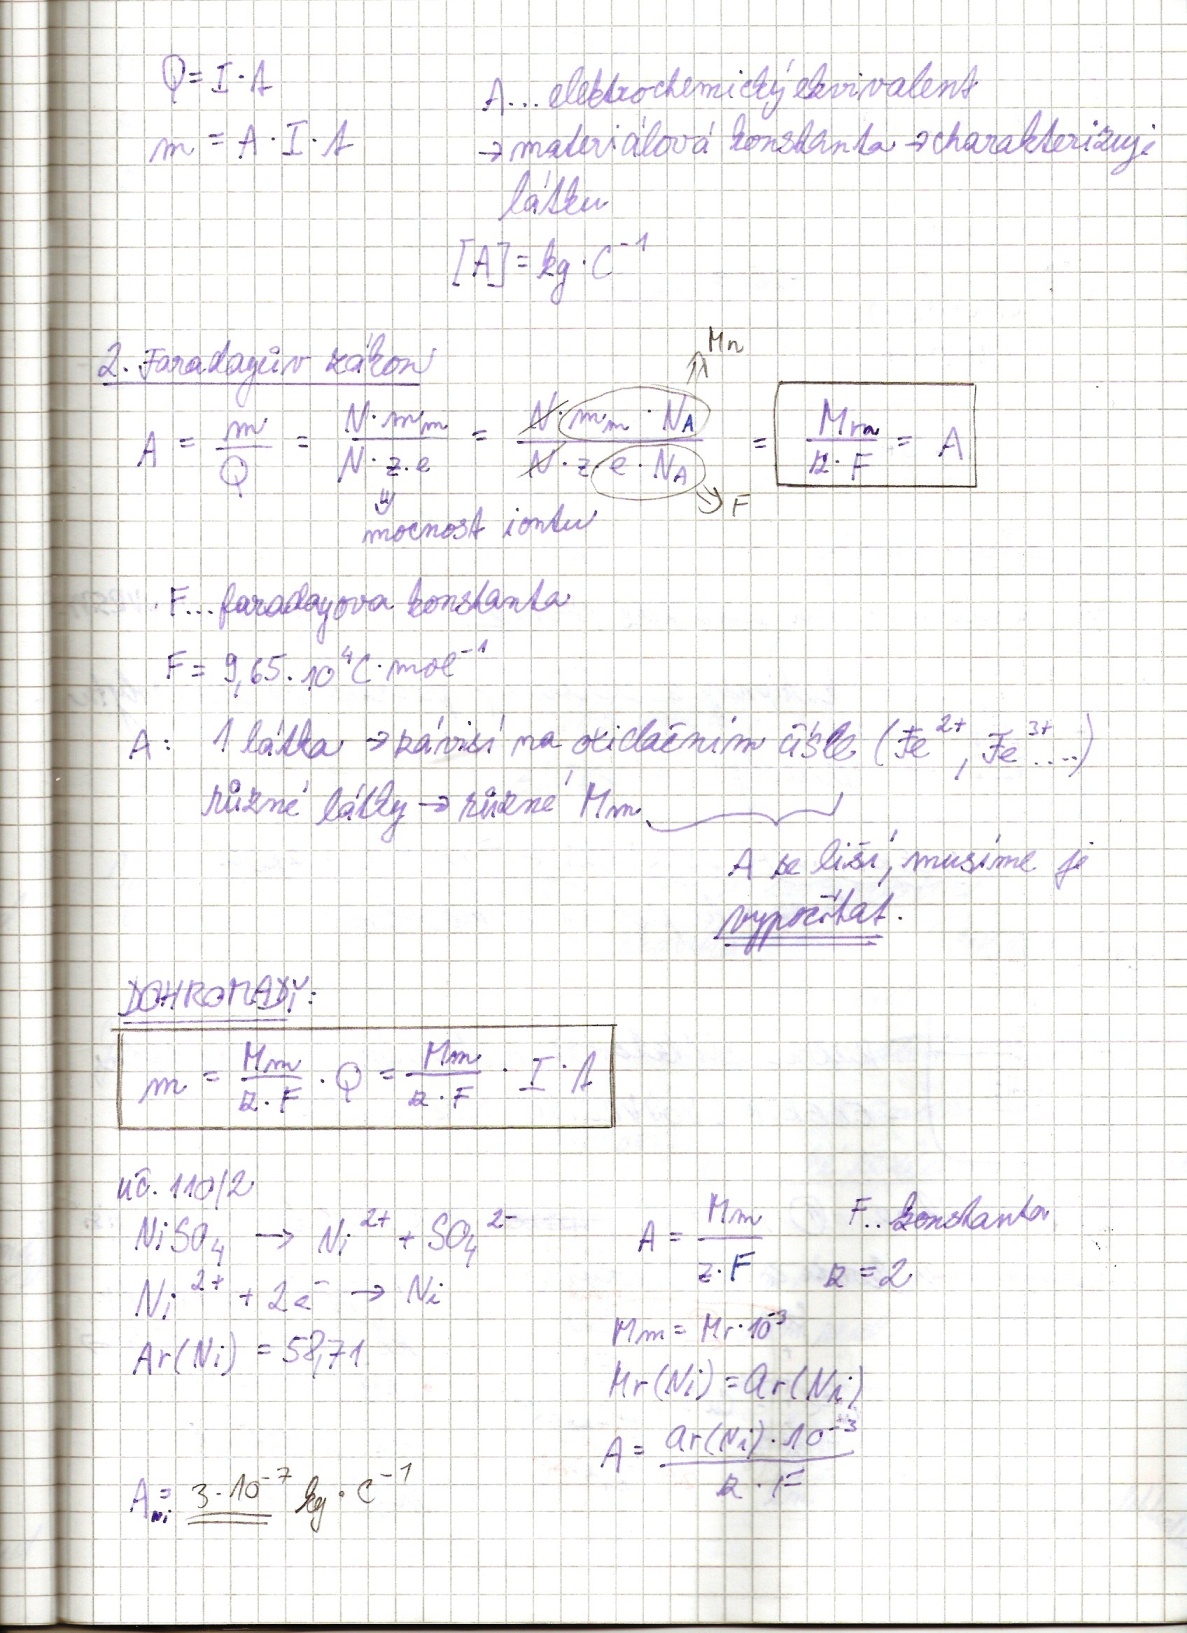 Q = I · t
m = A · I · t
A... elektrochemický ekvivalent
→ materiálová konstanta → charakterizuje
látku
[A] = kg · C⁻¹
2. Faradayův zákon
A = m/Q = N · mₘ / N · z · e = N · mₘ · N_A / N · z · e · N_A = Mm / z · F = A
Mm
F
mocnost iontu
F... faradayova konstanta
F = 9,65 · 10⁴ C · mol⁻¹
A: 1 látka → závisí na oxidačním čísle (Fe²⁺, Fe³⁺....)
různé látky → různé Mm
A se liší, musíme je
vypočítat.
DOHROMADY:
m = Mm / z · F · Q = Mm / z · F · I · t
uč. 110/2
NiSO₄ → Ni²⁺ + SO₄²⁻
Ni²⁺ + 2e⁻ → Ni
Ar(Ni) = 58,71
A = Mm / z · F
F.. konstanta
z = 2
Mm = Mr · 10⁻³
Mr(Ni) = ar(Ni)
A = ar(Ni) · 10⁻³ / z · F
A_Ni = 3 · 10⁻⁷ kg · C⁻¹